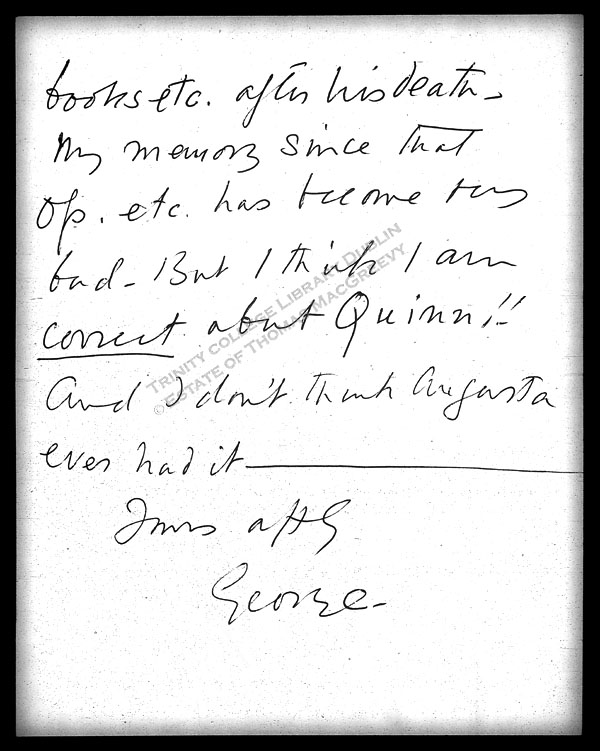 books etc. after his death -
My memory since that
Op. etc. has become very
bad - But I think I am
correct about Quinn!!
And I don't think Augusta
ever had it
Yours affly
George -
TRINITY COLLEGE LIBRARY DUBLIN
© ESTATE OF THOMAS MACGREEVY